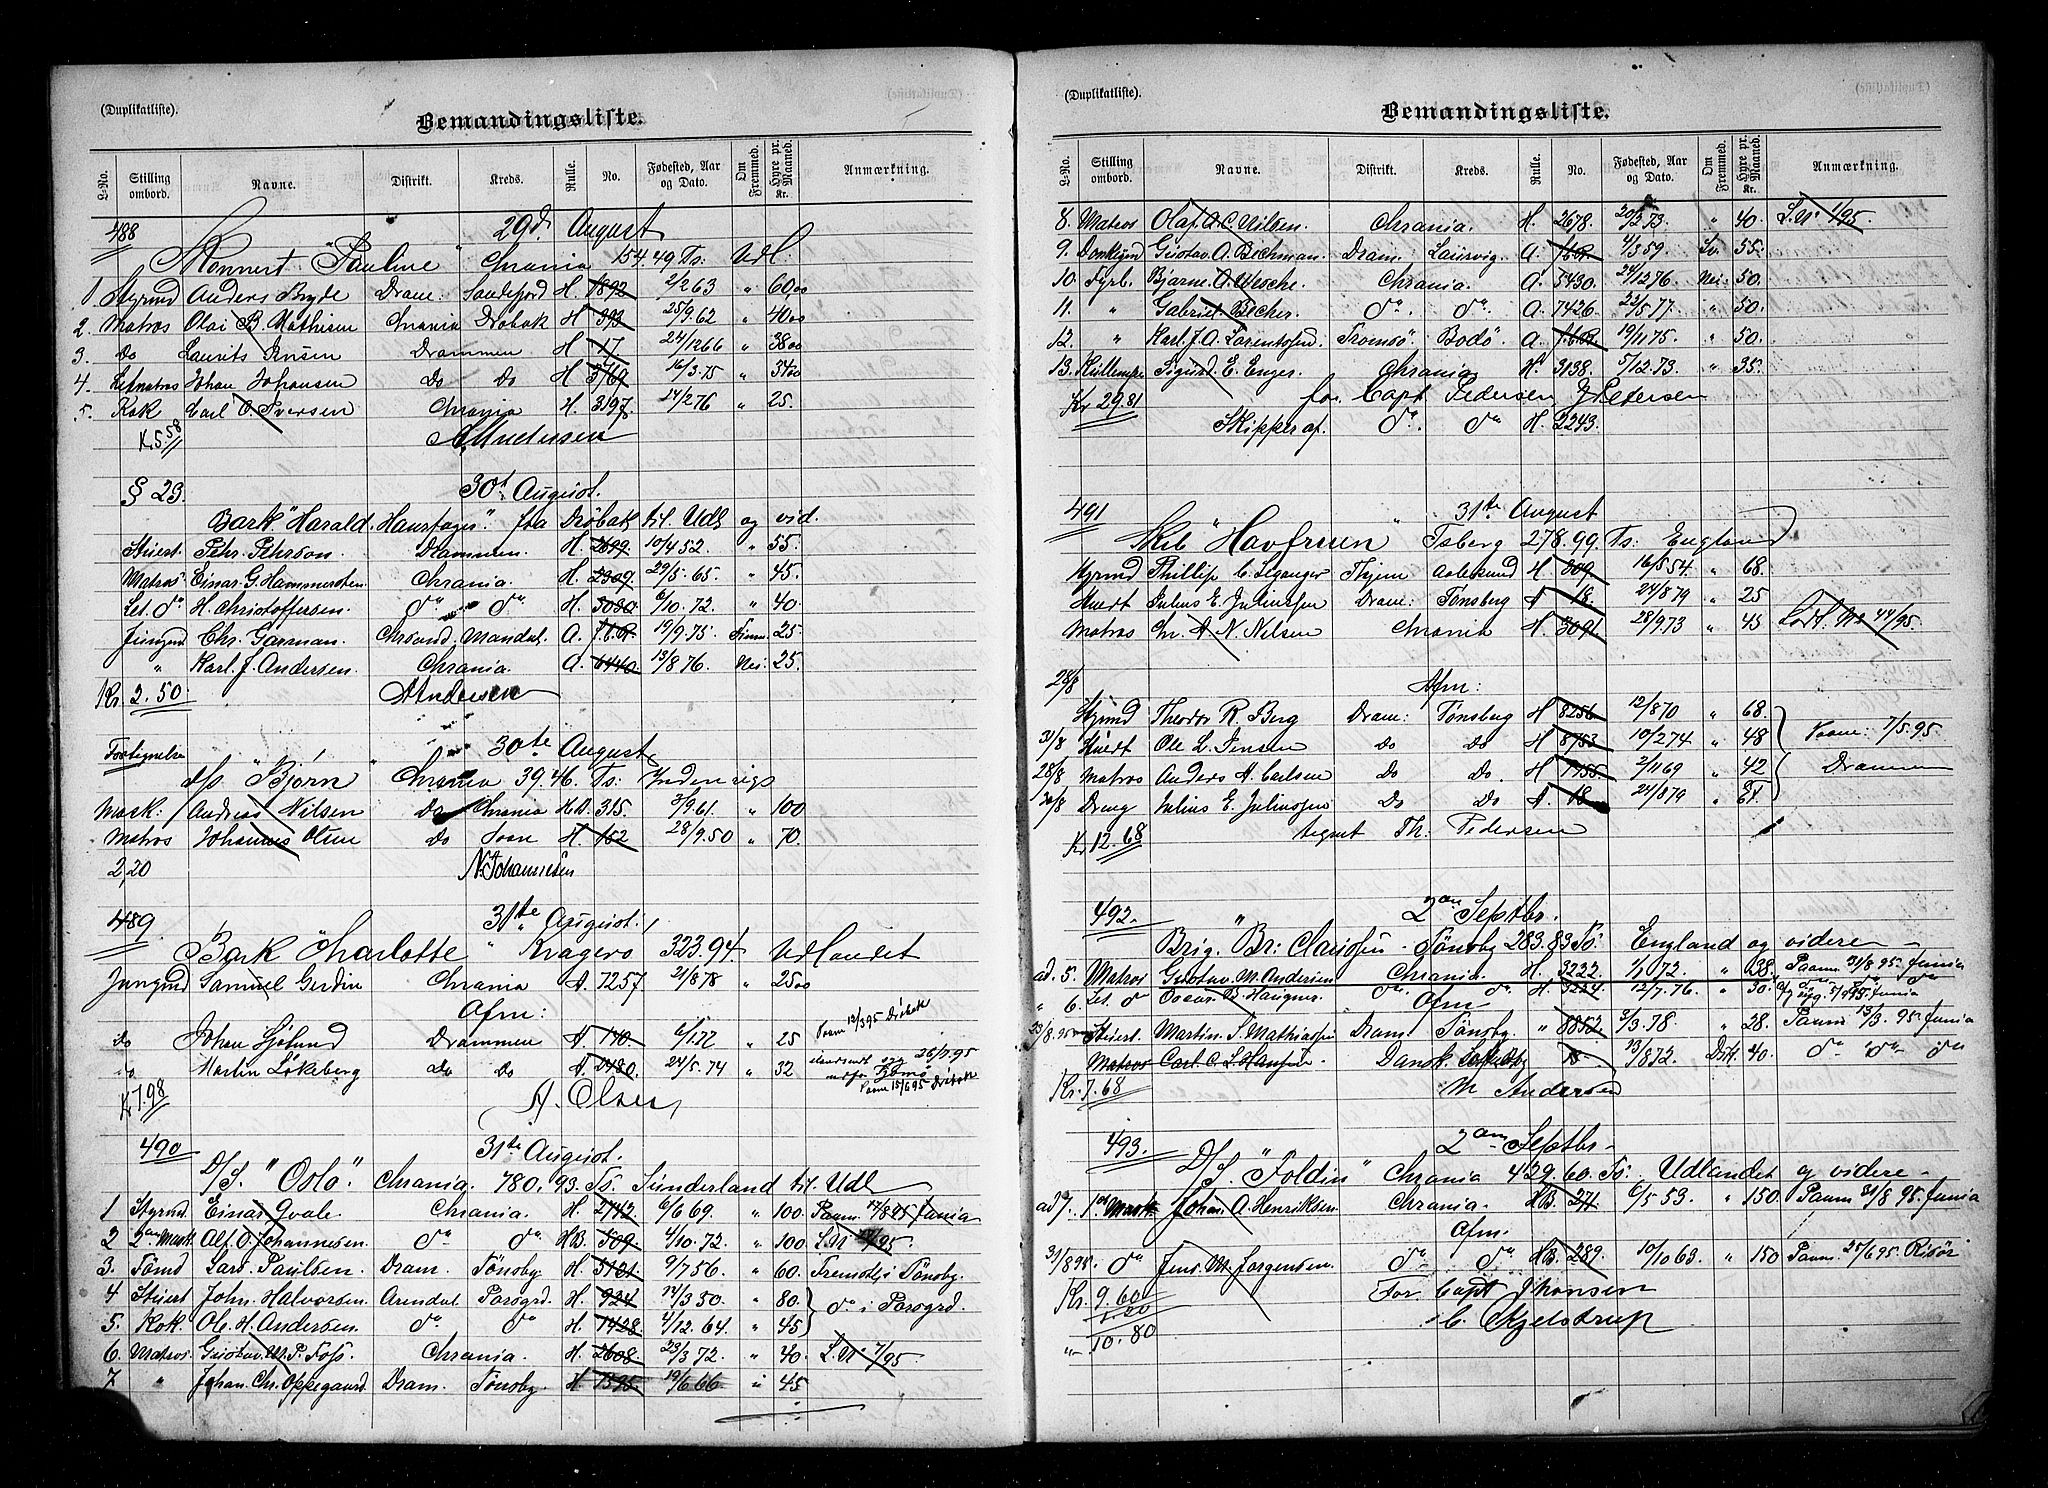 (Duplikatliste).
Bemandingsliste.
L-No. Stilling ombord. Navne. Distrikt. Kreds. Rulle. No. Fødested, Aar og Dato. Om Fremmed. Hyre pr. Maaned. Kr. Anmærkning.
488 29d August
Skonnert "Pauline" Chrania 154.49 Ts: Udl:
1. Styrmd Anders Bryde Dram: Sandefjord H. 1892 2/2 63 " 60,00
2. Matros Olai B. Mathisen Chrania Drøbak H 393 25/9.62 " 40 00
3. Do Laurits Jensen Drammen H 17 24/12 66 " 38 00
4. Letmatros Johan Johansen Do Do H 3769 16/3.75 " 34 00
5. Kok Carl O. Iversen Chrania H. 3197 24/2 76 " 25.
K. 5.58 A. Andersen
§ 23. 30t August.
Bark "Harald Haarfager". fra Drøbak til Udl og vid.
Stuert. Pehr. Pehrson. Drammen. H. 2699. 10/4 52. " 55.
Matros. Einar. G. Hammersten. Chrania. H. 2309. 29/5. 65. " 45.
Let. do H. Christoffersen. do do H. 3080 6/10. 72. " 40
Jungmd Chr. Garman. Chrsand. Mandal. A. 19/9. 75. 25.
" Karl. J. Andersen. Chrania. A. 6440 13/8 76. Nei: 25.
Kr 2.50. A Andersen
30te August
d/s "Bjørn" Chrania 39.46. Ts: Indenrigs
Mask: Andreas Nilsen Do Chrania HB. 315. 3/9 61. " 100
Matros Johannes Olsen Do Soon H. 152 28/9.50 " 70.
2,20 N. Johannesen
489. 31te August.
Bark "Charlotte" Kragerø 323.94. Udlandet
Jungmd Samuel Gerdin Chrania A. 7257 21/8 78 " 25 00
Afm:
do Johan Sjølund Drammen A. 140 6/1 72 " 25 Paam 12/3 95 Drøbak
do Martin Løkeberg Do Do A. 24/5.74 " 32 26/7.95
Paam 15/6 95 Drøbak
Kr 7.98 A. Olsen
490 31te August.
D/S. "Oslo". Chrania. 780.93. Ts. Sunderland til Udl
1 Styrmd Einar Qvale. Chrania. H. 2742 6/6 69. " 100. Paam 27/8 95 Junia
2 2den Mask Alf. O. Johannesen. do do HB. 509. 4/10. 72. " 100
3. Tømd Carl. Paulsen. Dram. Tønsby. H. 5101 9/7 56. " 60. Fremdeles Tønsby.
4 Stuert John. Halvorsen. Arendal. Porsgrd. H. 924 14/3 50. " 80. do i Porsgrd.
5. Kok. Ole. H. Andersen. do do H. 1428 4/12. 64. " 45
6. Matros. Gustav. M. P. Foss. Chrania. H. 2608 23/3 72. " 40. L.M. 7/95
7 " Johan. Chr. Oppegaard. Dram. Tønsby. H 1595 19/6 66 " 45
(Duplikatliste).
Bemandingsliste.
L-No. Stilling ombord. Navne. Distrikt. Kreds. Rulle. No. Fødested, Aar og Dato. Om Fremmed. Hyre pr. Maaned. Kr. Anmærkning.
8. Matros Olaf. A. C. Nilsen. Chrania. H. 2678. 20/2 73. " 40. L.M. 1/95
9. Donkymd Gustav. A. Bechman. Dram. Laurvig. A. 4/3 59. Sv. 55.
10. Fyrb. Bjarne. A. Wesche. Chrania. A. 5430. 24/12 76 Nei. 50.
11. " Gabriel. Becher. do do A. 7426 23/5 77. " 50
12. " Karl. J. A. Lorentsen. Tromsö. Bodö. A. 19/11 75. " 50.
13. Kullempr. Sigurd. E. Enger. Chrania. H. 3138. 5/12. 73. " 35.
Kr 29.81 for Capt Pedersen J. Petersen
Skipper af. do do H. 2243.
491 31te August
Skib "Havfruen" Tsberg 278.99. Ts: England
Styrmd Phillip C. Leganger Thjem Aalesund H 809. 16/8 54. " 68.
Stuert Julius E. Juliussen Dram: Tønsberg A 18. 24/8 79 " 25
Matros Chr. A. N. Nilsen Chrania H. 3091. 28/9 73 " 45
28/8 Afm:
Styrmd Theodor R. Berg Dram: Tønsberg H 8256 12/8 70 " 68. Paam: 7/5.95.
31/8 Stuert Ole L. Jensen Do Do H 8753 10/2 74 " 48 Drammen
28/8 Matros Anders A. Carlsen Do Do. H 1455 2/11 69 " 42
30/8 Dreng Julius E. Juliussen Do Do A. 18 24/8 79 "
Kr 12.68 August Th: Pedersen
492. 2den Septbr.
Brig. "Br: Clausen" Tönsby 283.83 Ts: England og videre
ad. 5. Matros Gustav. M. Andersen Chrania. H. 3222. 1/1 72. " 38. Paam 31/8 95. Junia
" 6. Let. do Oscar. B. Haugner. do do H. 3224 12/7. 76. " 30.
Afm
Stuert. Martin. S. Mathiasen Dram Tönsby. " 8852. 3/3. 78. " 28. Paam 13/3. 95. Junia
Matros Carl. C. L. Hansen. Dansk 23/8 72. 40. do do do
Kr. 7.68 M Andersen
493. 2den Septbr
D/S. "Foldin" Chrania 429.60. Ts: Udlandet og videre
ad 7. 1ste Mask. Johan. A. Henriksen Chrania. HB. 271 6/5 53. " 150. Paam 31/8 95. Junia
Afm.
31/8 95. do Jens. M. Jørgensen. do do HB. 289. 10/10 63. " 150 Paam 25/6 95. Risör
Kr. 9.60 For. Capt Jhansen
1.20 C. Kjelstrup
10.80